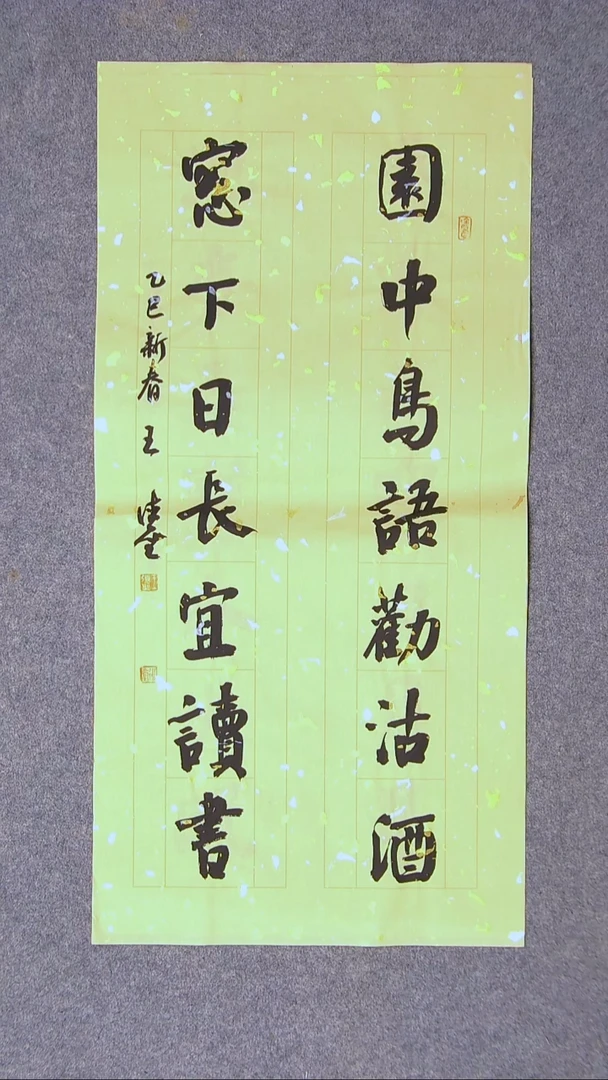 園中鳥語勸沽酒
窓下日長宜讀書
乙巳新春 王